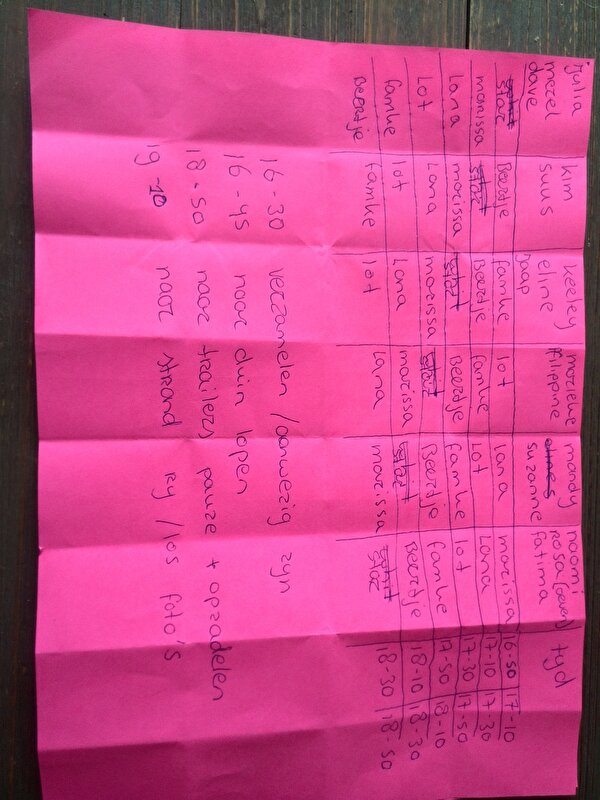 julia kim keeley marieke mandy naomi
merel suus eline filippine Rosa (geven) tyd
dave jaap suzanne fatima
star Beertje famke lot lana marissa 16-50 17-10
marissa star Beertje famke Lot Lana 17-10 17-30
Lana marissa star Beertje famke lot 17-30 17-50
Lot Lana marissa star Beertje famke 17-50 18-10
famke lot Lana marissa star Beertje 18-10 18-30
Beertje famke lot Lana marissa star 18-30 18-50
16-30 verzamelen / aanwezig zyn
16-45 naar duin lopen
18-50 naar trailers, pauze + opzadelen
19-10 naar strand ry / los foto's